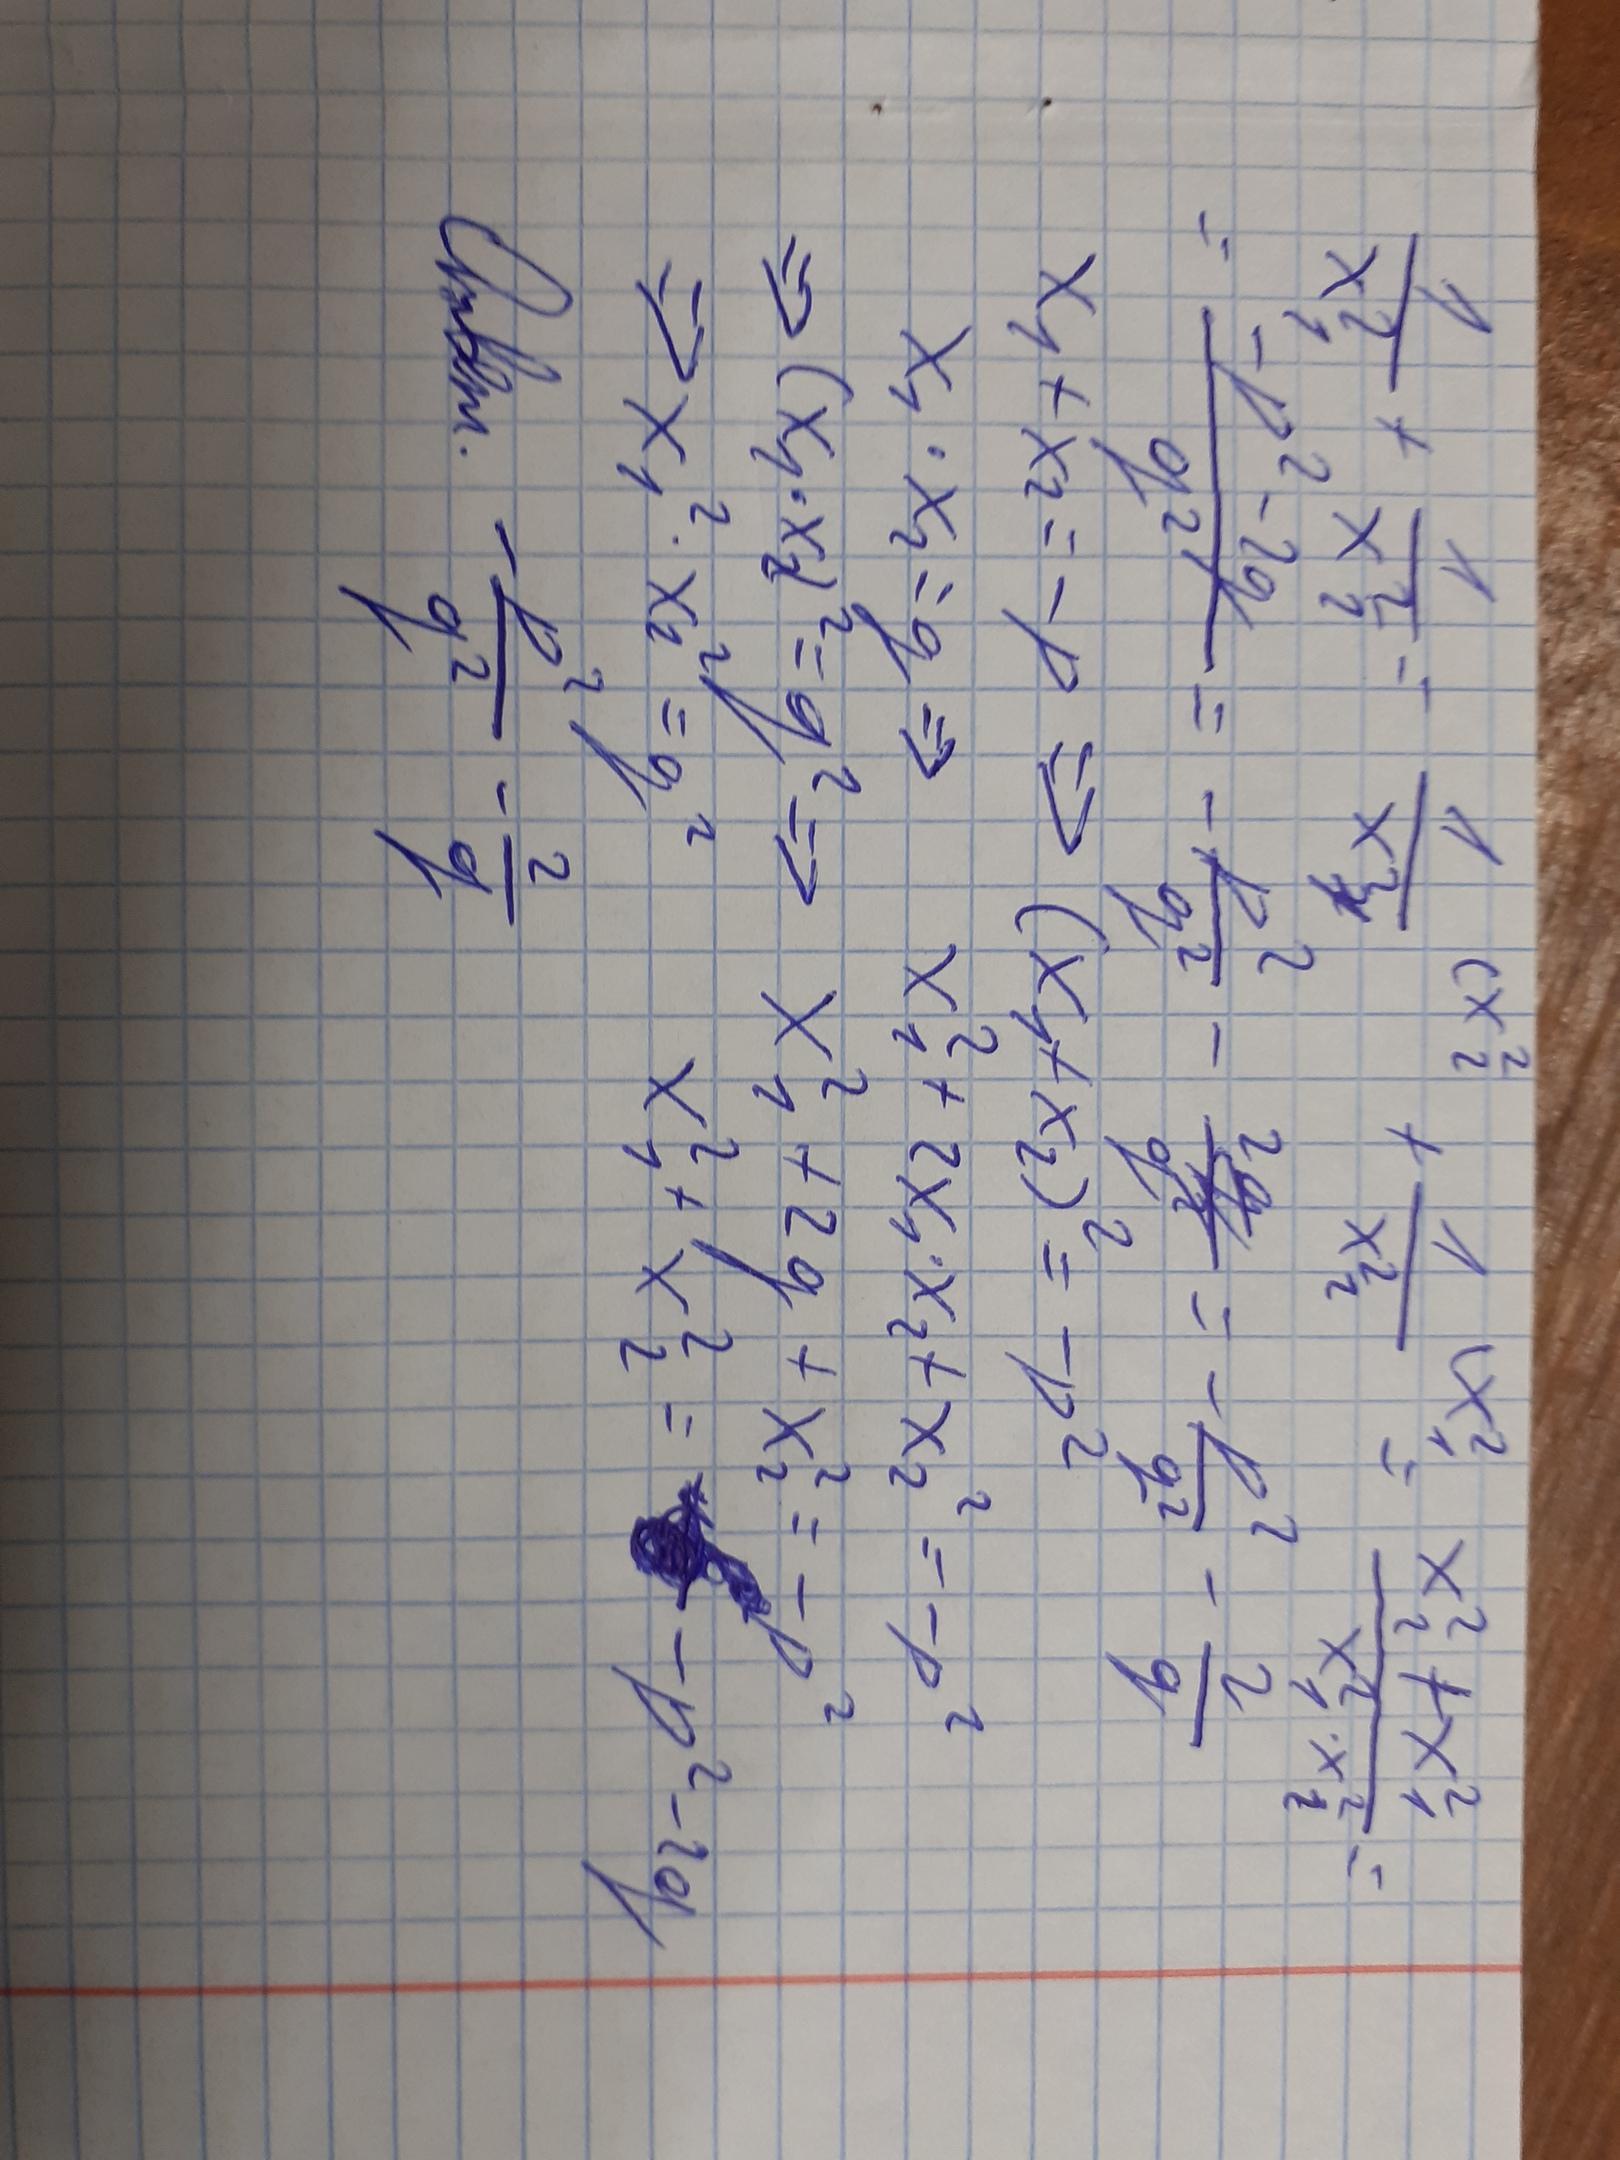 1/x₁² + 1/x₂² = 1/x₁² (x₂² + 1/x₂² (x₁² = (x₂² + x₁²)/(x₁² · x₂²) =
= (-p² - 2q)/q² = - p²/q² - 2q/q² = - p²/q² - 2/q
x₁ + x₂ = -p ⇒ (x₁ + x₂)² = -p²
x₁ · x₂ = q ⇒ x₁² + 2x₁ · x₂ + x₂² = -p²
⇒ (x₁ · x₂)² = q² ⇒ x₁² + 2q + x₂² = -p²
⇒ x₁² · x₂² = q² x₁² + x₂² = -p² - 2q
Ответ. - p²/q² - 2/q